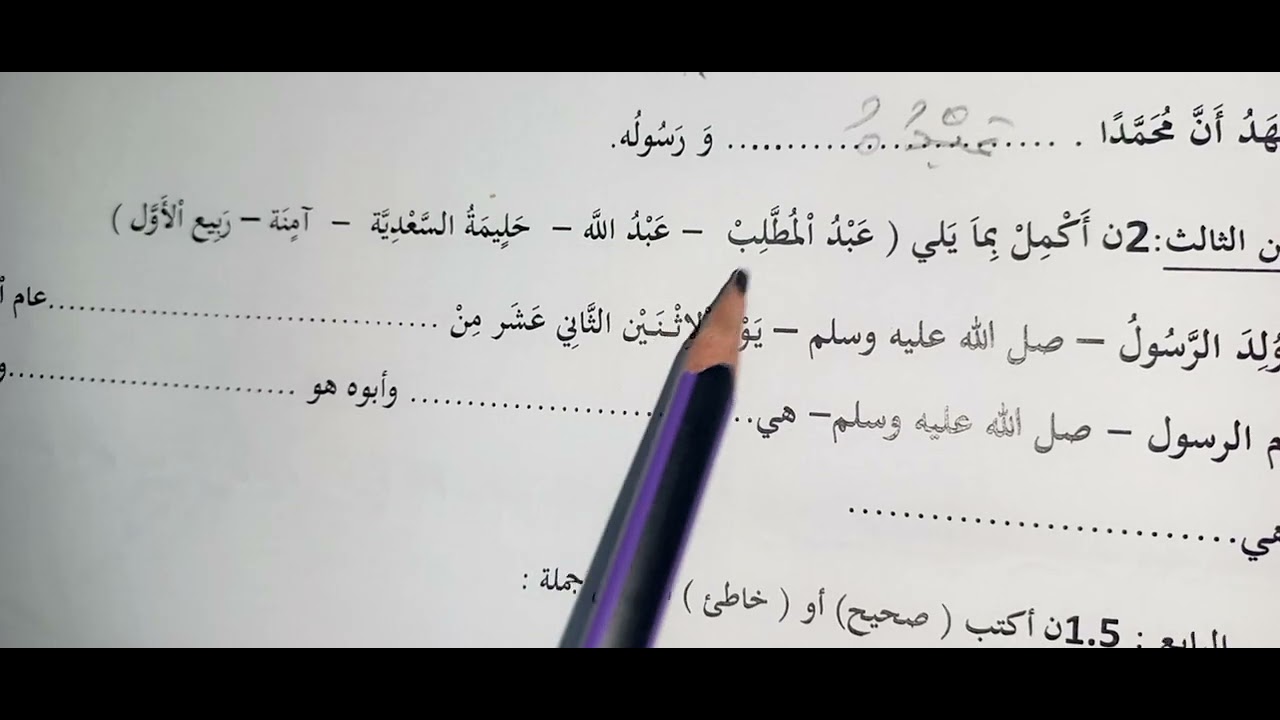 أَنَّ مُحَمَّدًا .................... وَ رَسُولُه.
الثالث :2ن أَكْمِلْ بِماَ يَلي ( عَبْدُ اْلمُطَّلِبْ – عَبْدُ اللَّه – حَلِيمَةُ السَّعْدِيَّة – آمِنَة – رَبِيع اْلأَوَّل )
وُلِدَ الرَّسُولُ – صل الله عليه وسلم – اْلاِثْنَيْن الثَّانِي عَشَر مِنْ ....................................عام
الرسول – صل الله عليه وسلم– هي.................................... وأبوه هو ..............................
هي..............................
الرابع : 1.5ن أكتب ( صحيح) أو ( خاطئ ) جملة :